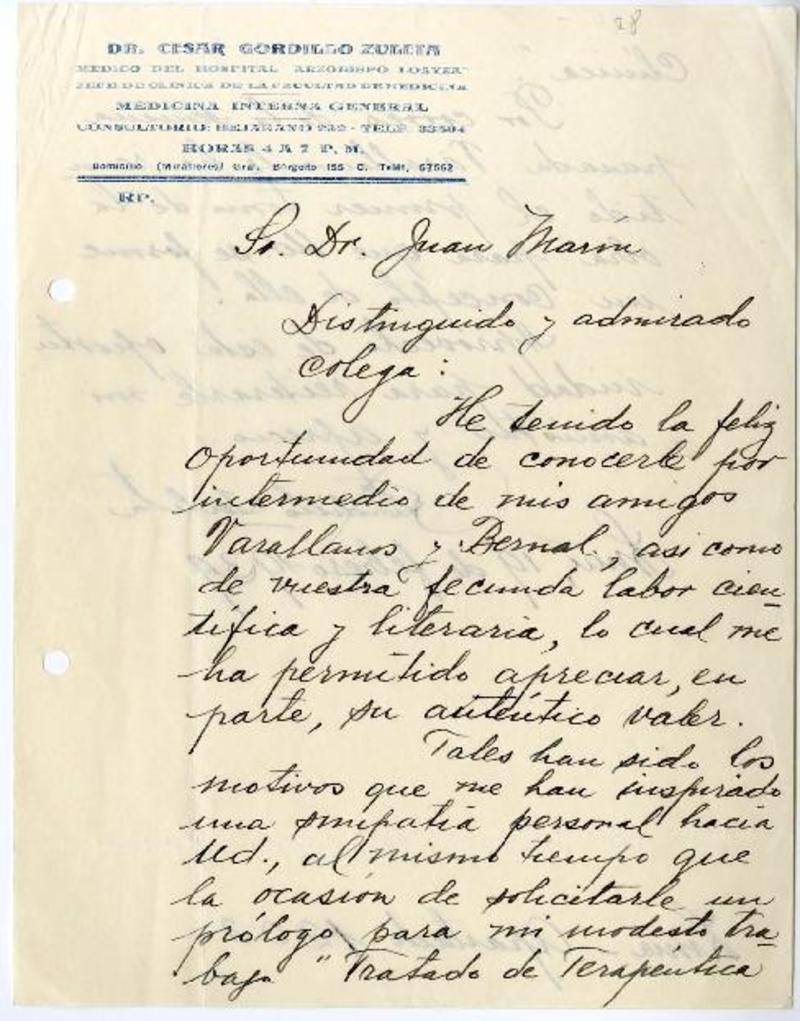 28
DR. CESAR GORDILLO ZULETA
MEDICO DEL HOSPITAL "ARZOBISPO LOAYZA"
JEFE DE CLINICA DE LA FACULTAD DE MEDICINA
MEDICINA INTERNA GENERAL
CONSULTORIO: BEJARANO 232 - TELF. 33504
HORAS 4 A 7 P. M.
Domicilio (Miraflores) Gral. Borgoño 155 C. Telf. 67562
RP.
Sr. Dr. Juan Marín
Distinguido y admirado
colega:
He tenido la feliz
oportunidad de conocerle por
intermedio de mis amigos
Varallanos y Bernal, asi como
de vuestra fecunda labor cien-
tífica y literaria, lo cual me
ha permitido apreciar, en
parte, su auténtico valer.
Tales han sido los
motivos que me han inspirado
una simpatía personal hacia
Ud., al mismo tiempo que
la ocasión de solicitarle un
prólogo para mi modesto tra-
bajo "Tratado de Terapéutica